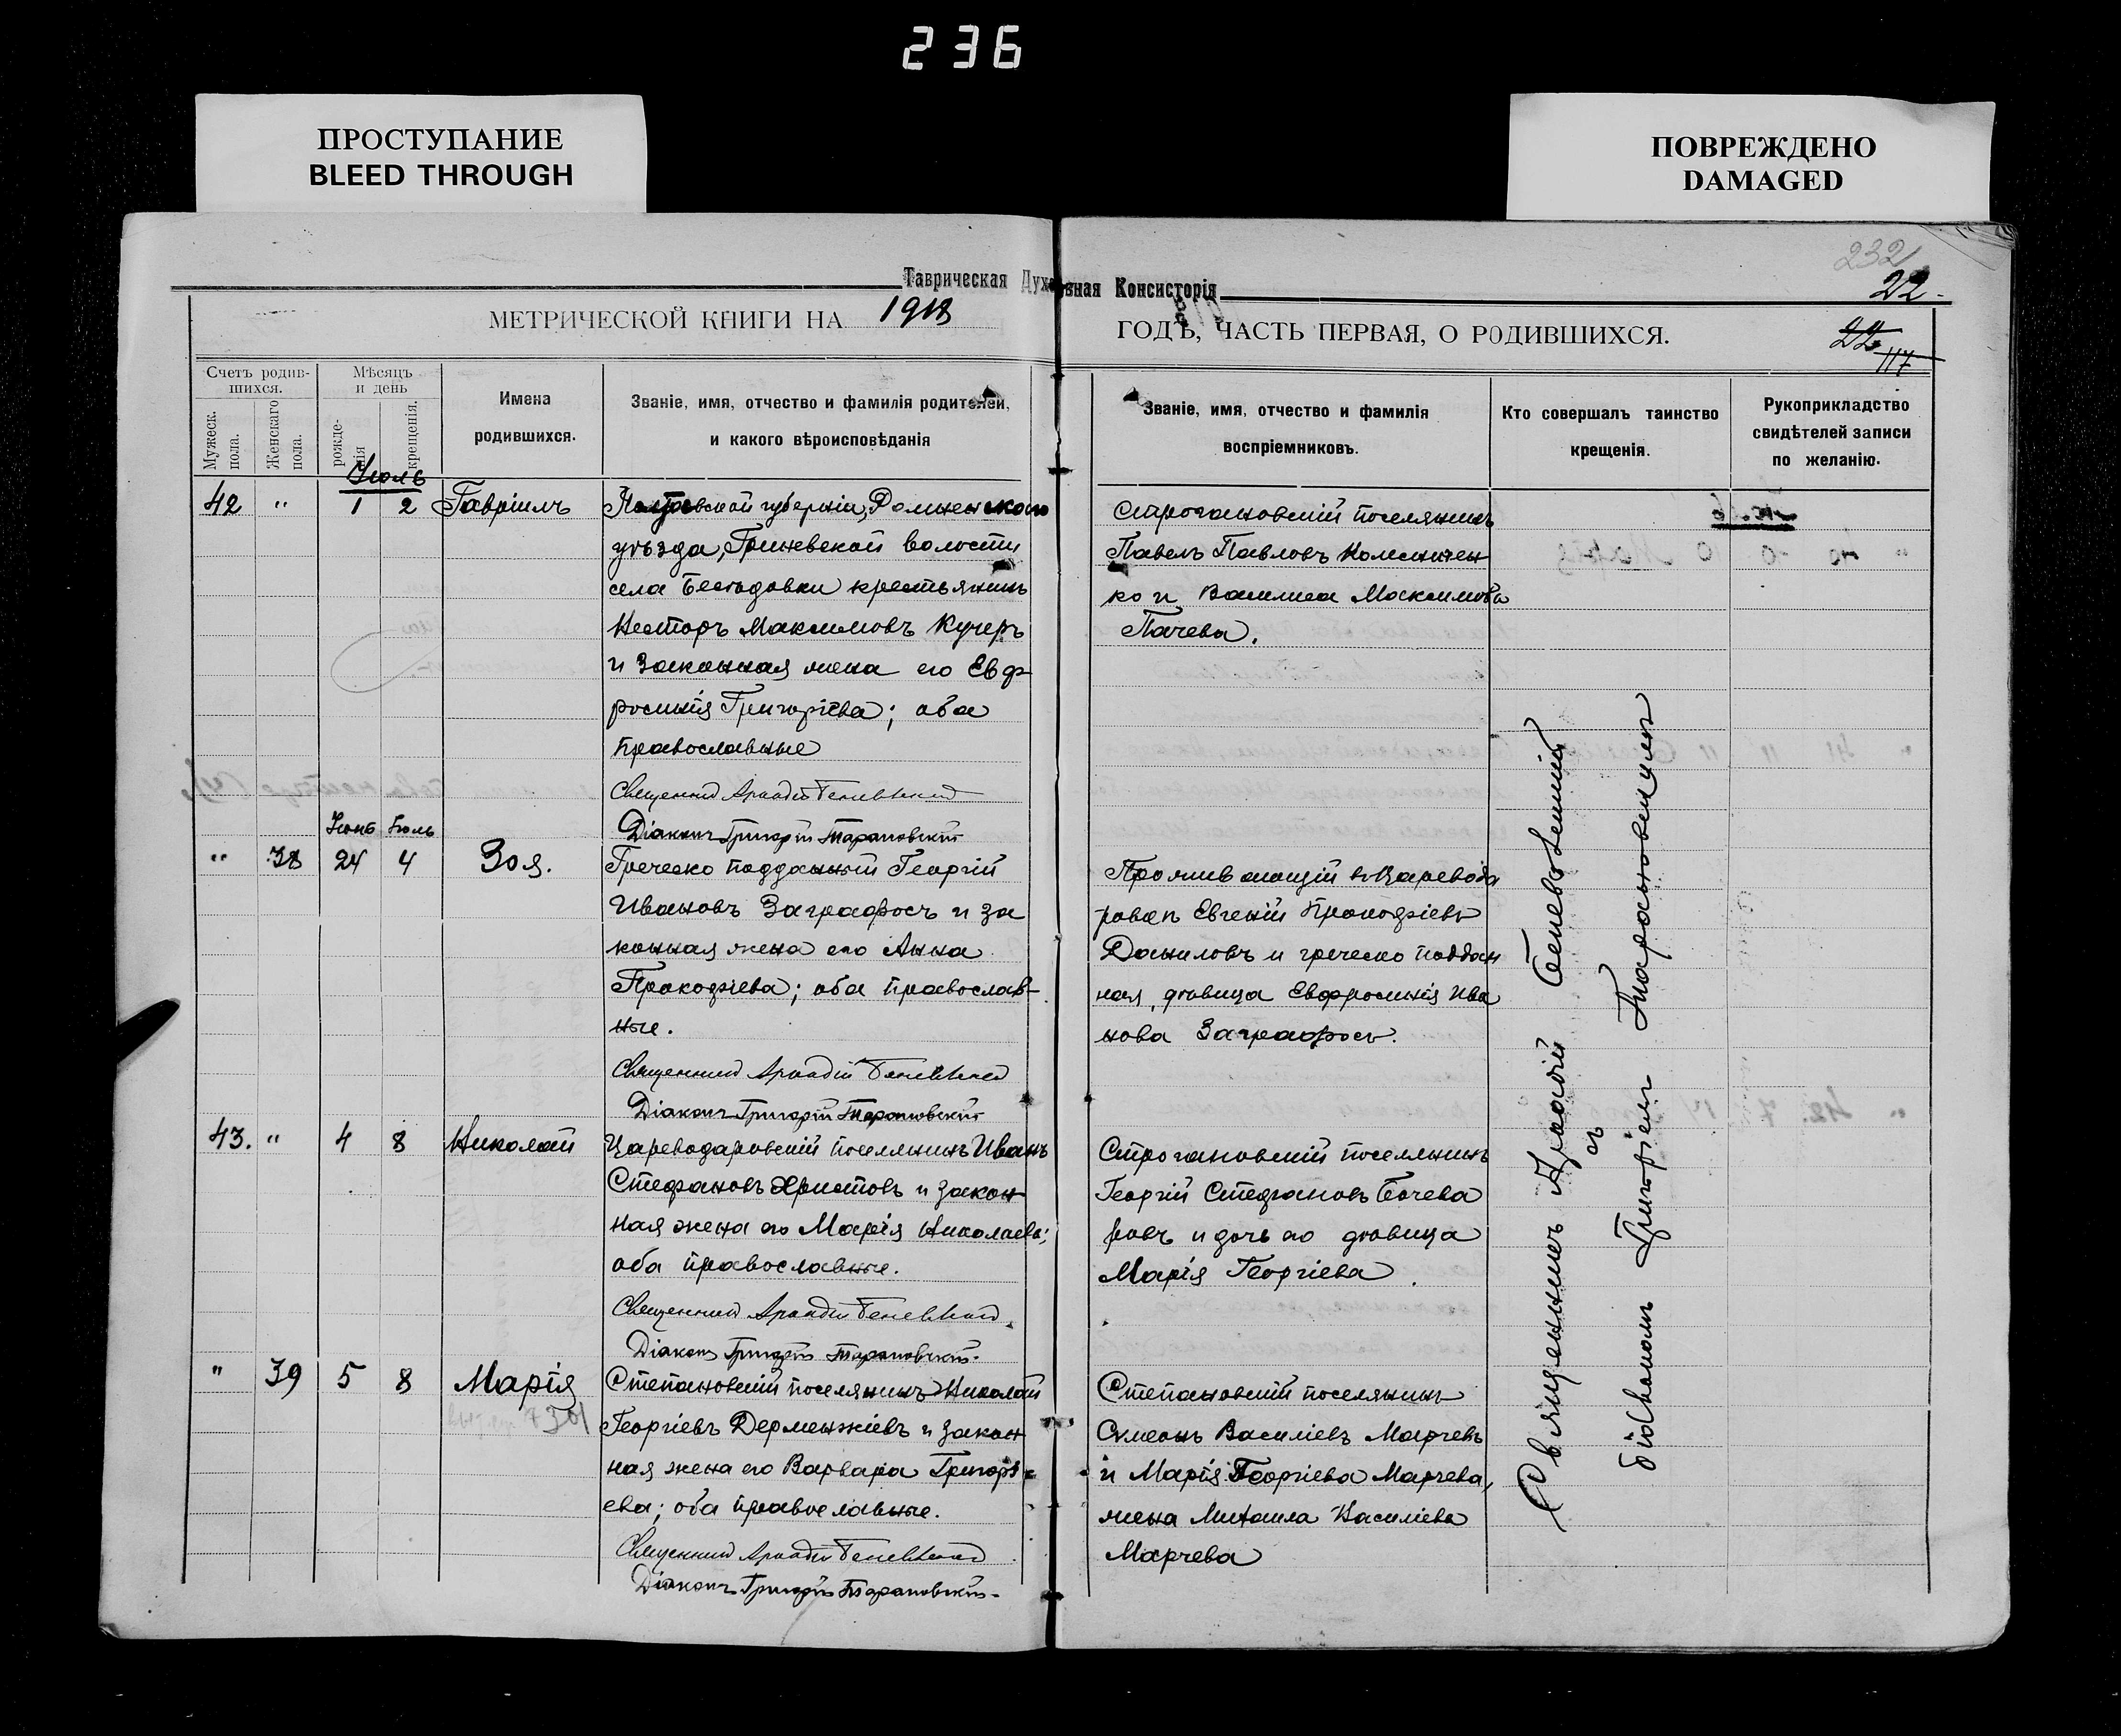 236
ПРОСТУПАНИЕ
BLEED THROUGH
ПОВРЕЖДЕНО
DAMAGED
232
22.
Таврическая Духовная Консисторія
МЕТРИЧЕСКОЙ КНИГИ НА 1918
ГОДЪ, ЧАСТЬ ПЕРВАЯ, О РОДИВШИХСЯ.
22
117
Счетъ родив-
шихся.
Мужеск. пола.
Женскаго пола.
Мѣсяцъ
и день
рожде-
нія
крещенія.
Имена
родившихся.
Званіе, имя, отчество и фамилія родителей,
и какого вѣроисповѣданія
Званіе, имя, отчество и фамилія
воспріемниковъ.
Кто совершалъ таинство
крещенія.
Рукоприкладство
свидѣтелей записи
по желанію.
Іюль
42 " 1 2 Гавріилъ
Полтавской губерніи, Роменскаго
уѣзда, Гриневской волости
села Бесѣдовки крестьянинъ
Несторъ Максимовъ Кучеръ
и законная жена его Евф-
росинія Григоріева; оба
православные
Священник Аркадій
Діаконъ Григорій Тарановскій
Строгановскій поселянинъ
Павелъ Павловъ Колесничен-
ко и Василиса Максимова
Пачева.
Іюнь Іюль
" 38 24 4 Зоя.
Греческо подданный Георгій
Ивановъ Заграфосъ и за
конная жена его Анна
Прокофіева; оба православ-
ные.
Священник Аркадій
Діаконъ Григорій Тарановскій
Проживающій в Царевода
ровкѣ Евгеній Прокофіевъ
Даниловъ и греческо поддан
ная, дѣвица Евфросинія Ива
нова Заграфосъ.
43. " 4 8 Николай
Цареводаровскій поселянинъ Иванъ
Стефановъ Христовъ и закон-
ная жена его Марія Николаева;
оба православные.
Священник Аркадій
Діаконъ Григорій Тарановскій.
Строгановскій поселянинъ
Георгій Стефановъ Бочева
ровъ и дочь его дѣвица
Марія Георгіева.
" 39 5 8 Марія
Степановскій поселянинъ Николай
Георгіевъ Дерменжіевъ и закон
ная жена его Варвара Григорі-
ева; оба православные.
Священник Аркадій
Діаконъ Григорій Тарановскій.
Степановскій поселянинъ
Симеонъ Василіевъ Марчевъ
и Марія Георгіева Марчева,
жена Михаила Василіева
Марчева
Священникъ Аркадій
съ
діакономъ Григоріемъ Тарановскимъ